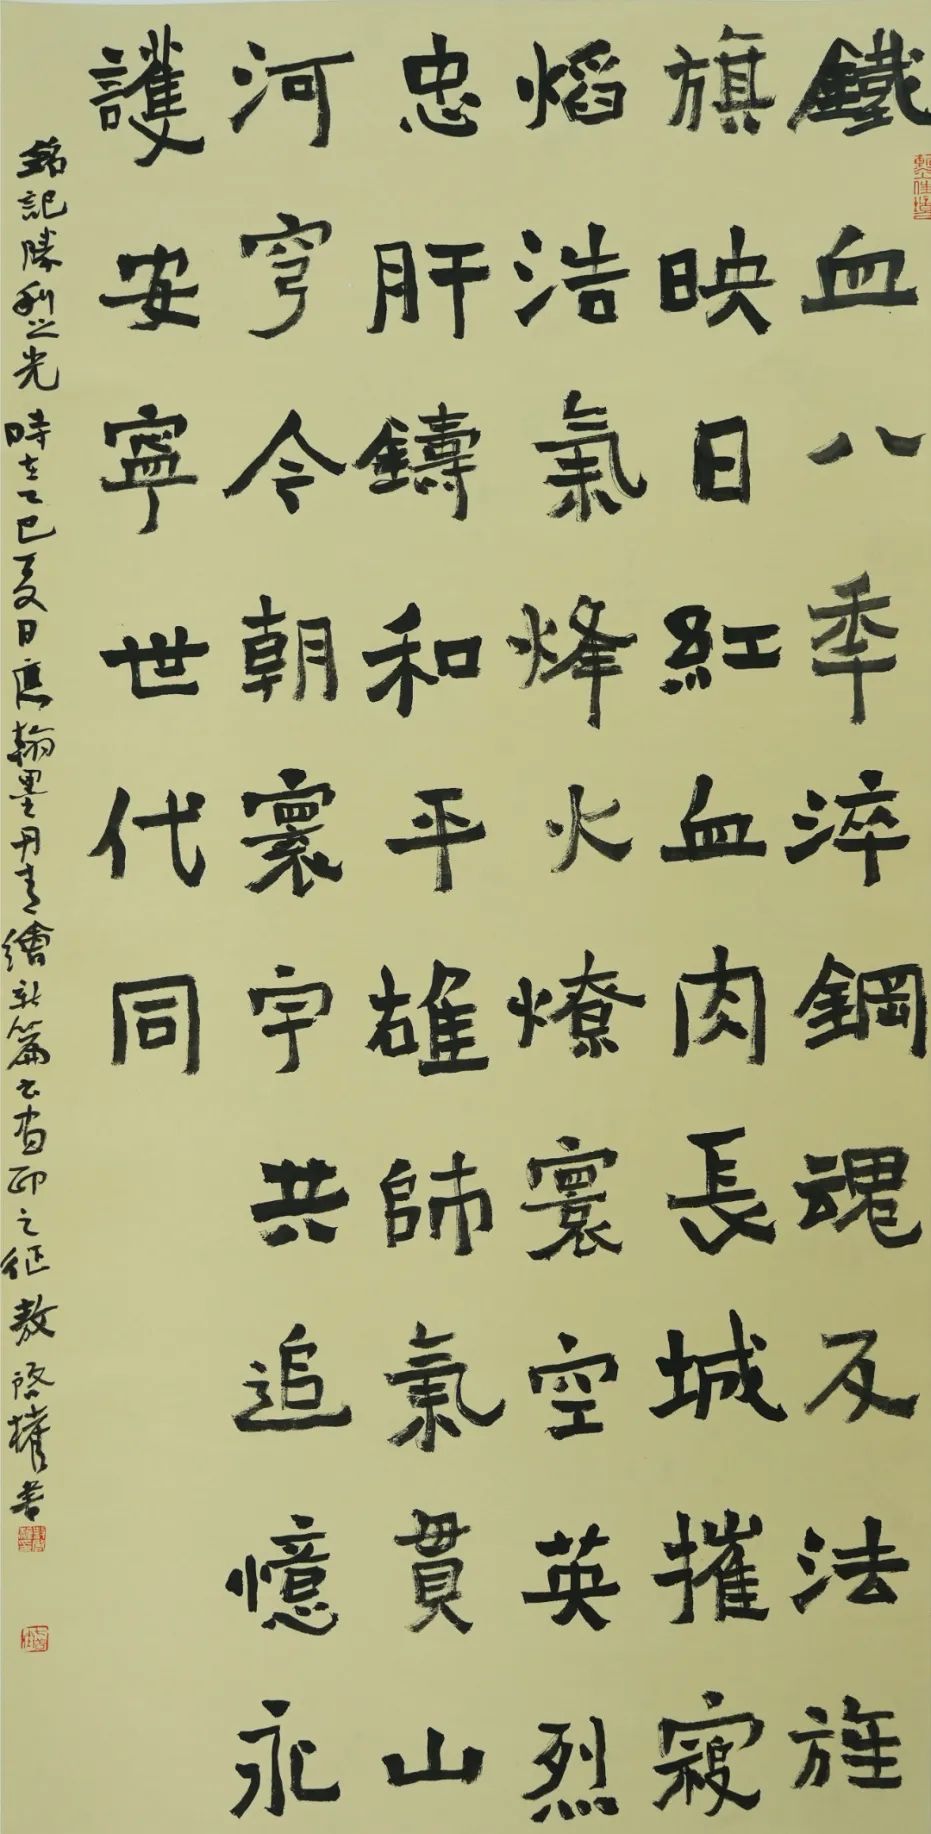 鐵血八季淬鋼魂反法旌
旗映日紅血肉長城摧寇
焰浩氣烽火燎寰空英烈
忠肝鑄和平雄師氣貫山
河穹今朝寰宇共追憶永
護安寧世代同
銘記勝利之光 時在乙巳夏日應翰墨丹青繪新篇書畫印之征 敖啓權書